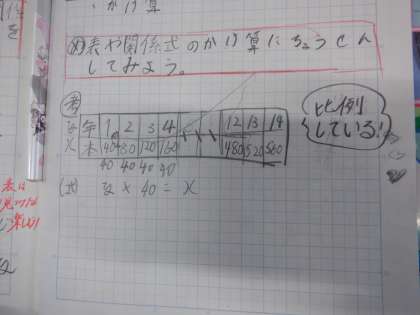 かけ算
め 表や関係式のかけ算にちょうせん
してみよう。
考
比例
している!
y 年 1 2 3 4 12 13 14
x 本 40 80 120 160 480 520 560
40 40 40 40
(式) y × 40 = x